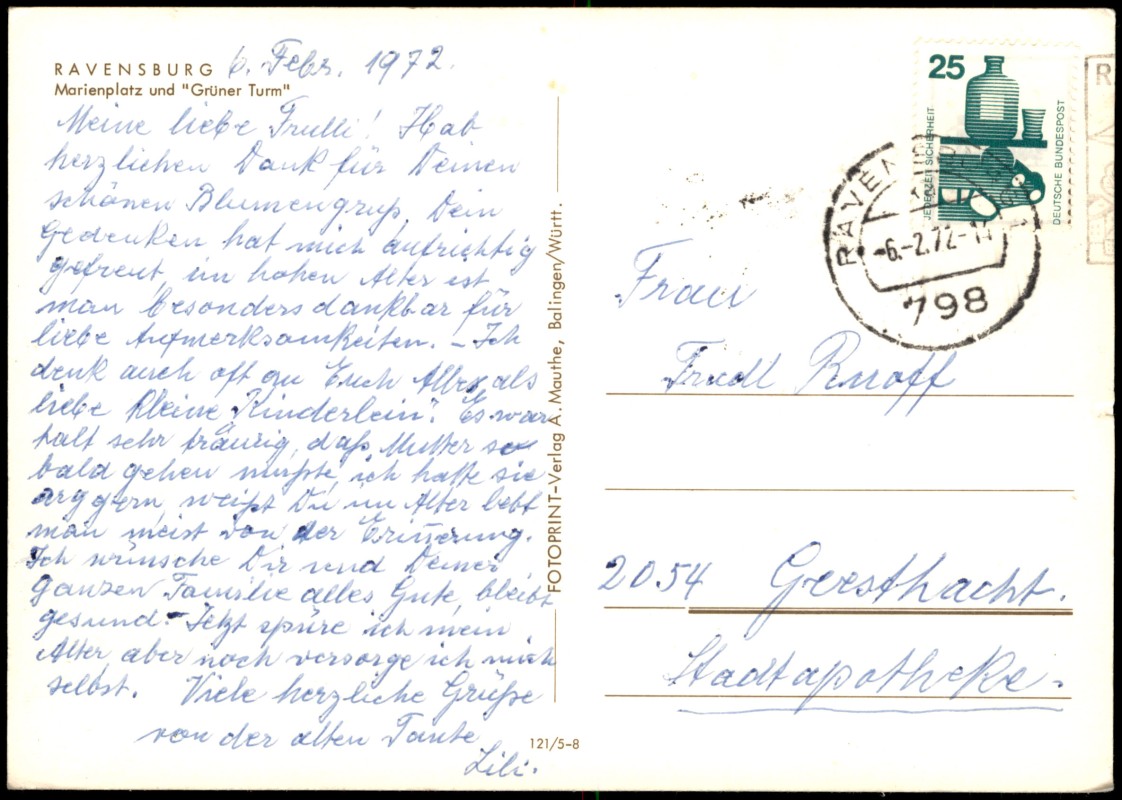 RAVENSBURG 6. Febr. 1972.
Marienplatz und "Grüner Turm"
Meine liebe Frulli! Hab
herzlichen Dank für Deinen
schönen Blumengruß. Dein
Gedenken hat mich aufrichtig
gefreut, im hohen Alter ist
man besonders dankbar für
liebe Aufmerksamkeiten. – Ich
denk auch oft an Euch Alle als
liebe kleine Kinderlein". Es war
halt sehr traurig, daß Mutter so
bald gehen mußte, ich hatte sie
arg gern, weißt Du im Alter lebt
man meist von der Erinnerung.
Ich wünsche Dir und Deiner
ganzen Familie alles Gute, bleibt
gesund. – Jetzt spüre ich mein
Alter, aber noch versorge ich mich
selbst. Viele herzliche Grüße
von der alten Tante
Lili.
FOTOPRINT-Verlag A. Mauthe, Balingen/Württ.
121/5-8
25
JEDERZEIT SICHERHEIT
DEUTSCHE BUNDESPOST
RAVEN
-6.-2.72-
798
R
Frau
Friedl Ruoff
2054 Geesthacht.
Stadtapotheke.